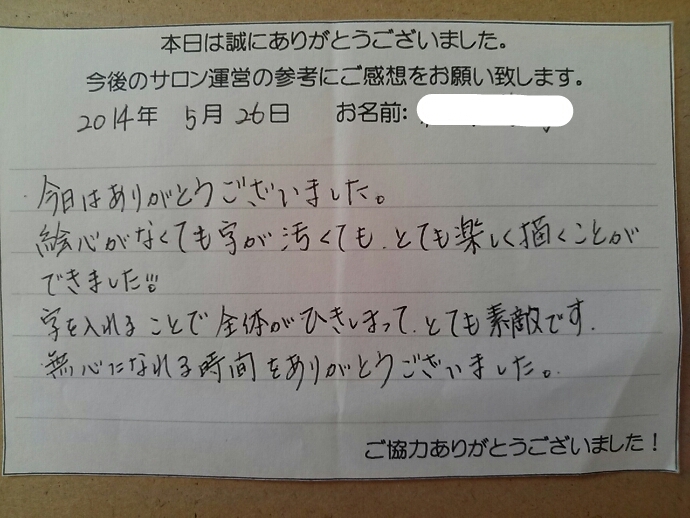 本日は誠にありがとうございました。
今後のサロン運営の参考にご感想をお願い致します。
2014年 5月 26日 お名前:
今日はありがとうございました。
絵心がなくても字が汚くても、とても楽しく描くことが
できました!!!
字を入れることで全体がひきしまって、とても素敵です.
無心になれる時間をありがとうございました。
ご協力ありがとうございました!